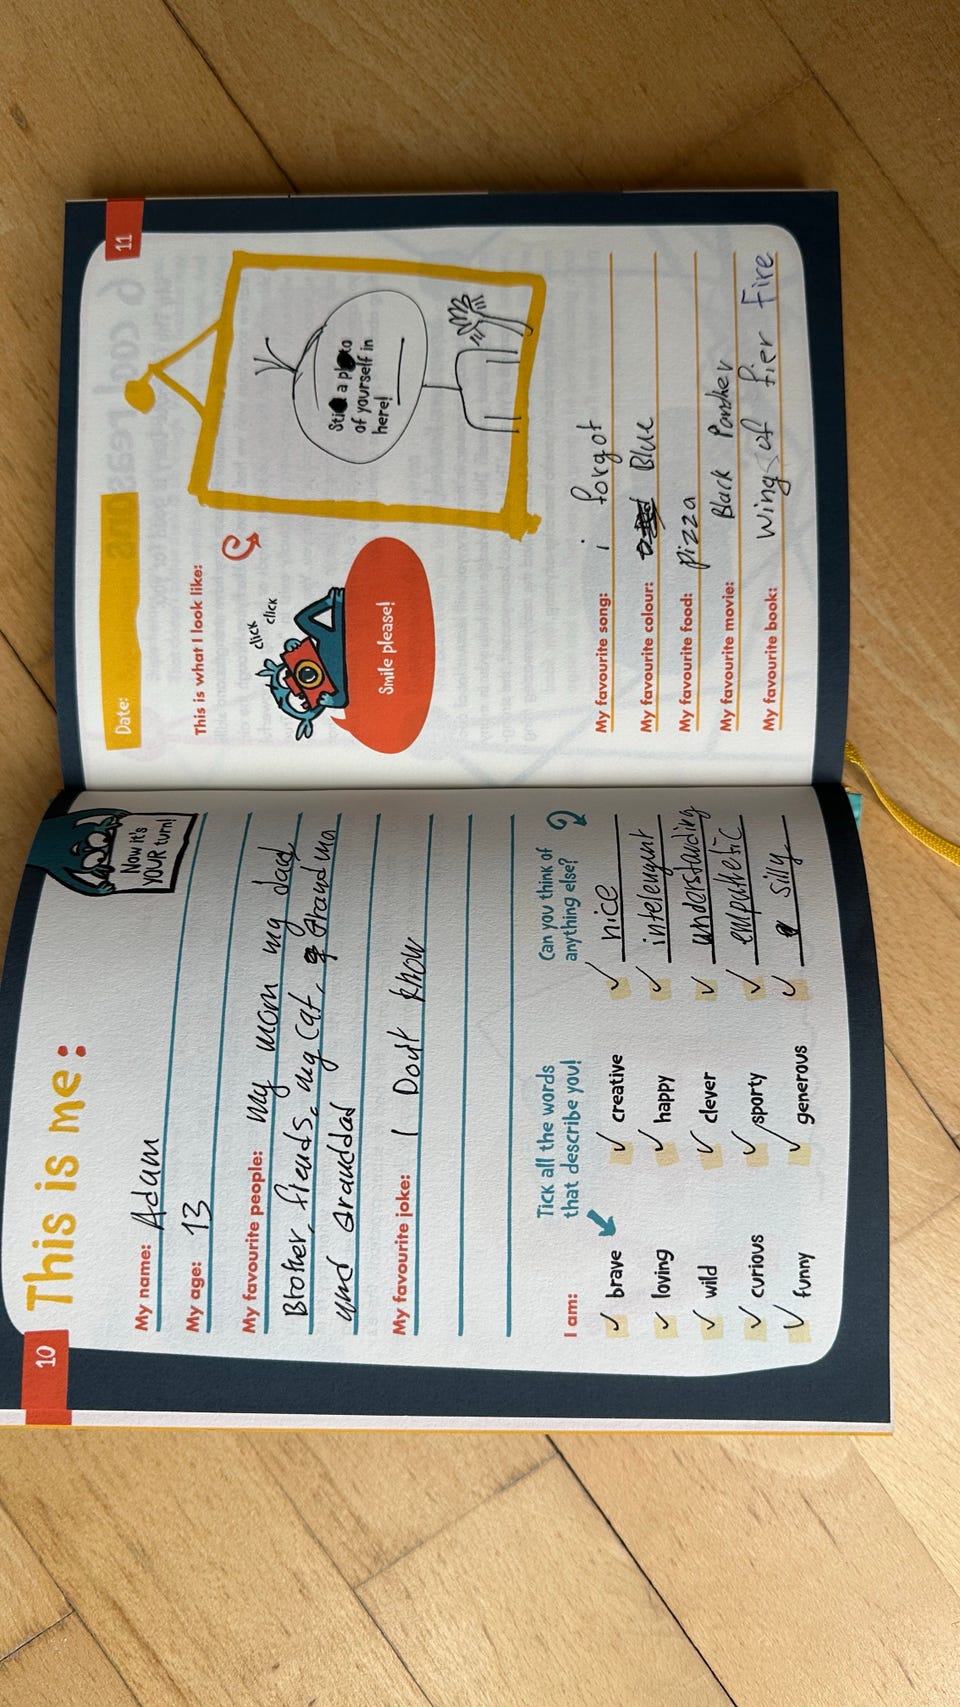 10
This is me:
Now it's
YOUR turn!
My name: Adam
My age: 13
My favourite people: my mom my dad
Brother, friends, my cat, Grandma
and Granddad
My favourite joke: I Dont know
Tick all the words
that describe you!
Can you think of
anything else?
I am:
✓ brave ✓ creative ✓ nice
✓ loving ✓ happy ✓ intelengint
✓ wild ✓ clever ✓ understanding
✓ curious ✓ sporty ✓ empathetic
✓ funny ✓ generous ✓ silly
11
Date:
This is what I look like:
click
click
Smile please!
a
of yourself in
here!
My favourite song: i forgot
My favourite colour: Blue
My favourite food: pizza
My favourite movie: Black Panther
My favourite book: Wings of fier Fire